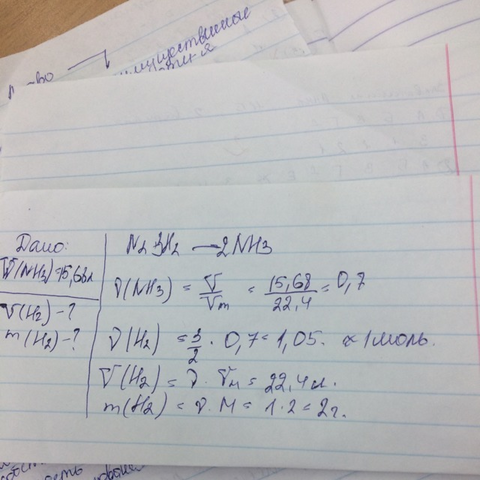 имущественные
Дано:
V(NH3)=15,68л
V(H2)-?
m(H2)-?
N2 3H2 → 2NH3
ν(NH3) = V/Vm = 15,68/22,4 = 0,7
ν(H2) = 3/2 · 0,7 = 1,05. ≈ 1моль.
V(H2) = ν · Vм = 22,4л.
m(H2) = ν · M = 1 · 2 = 2г.